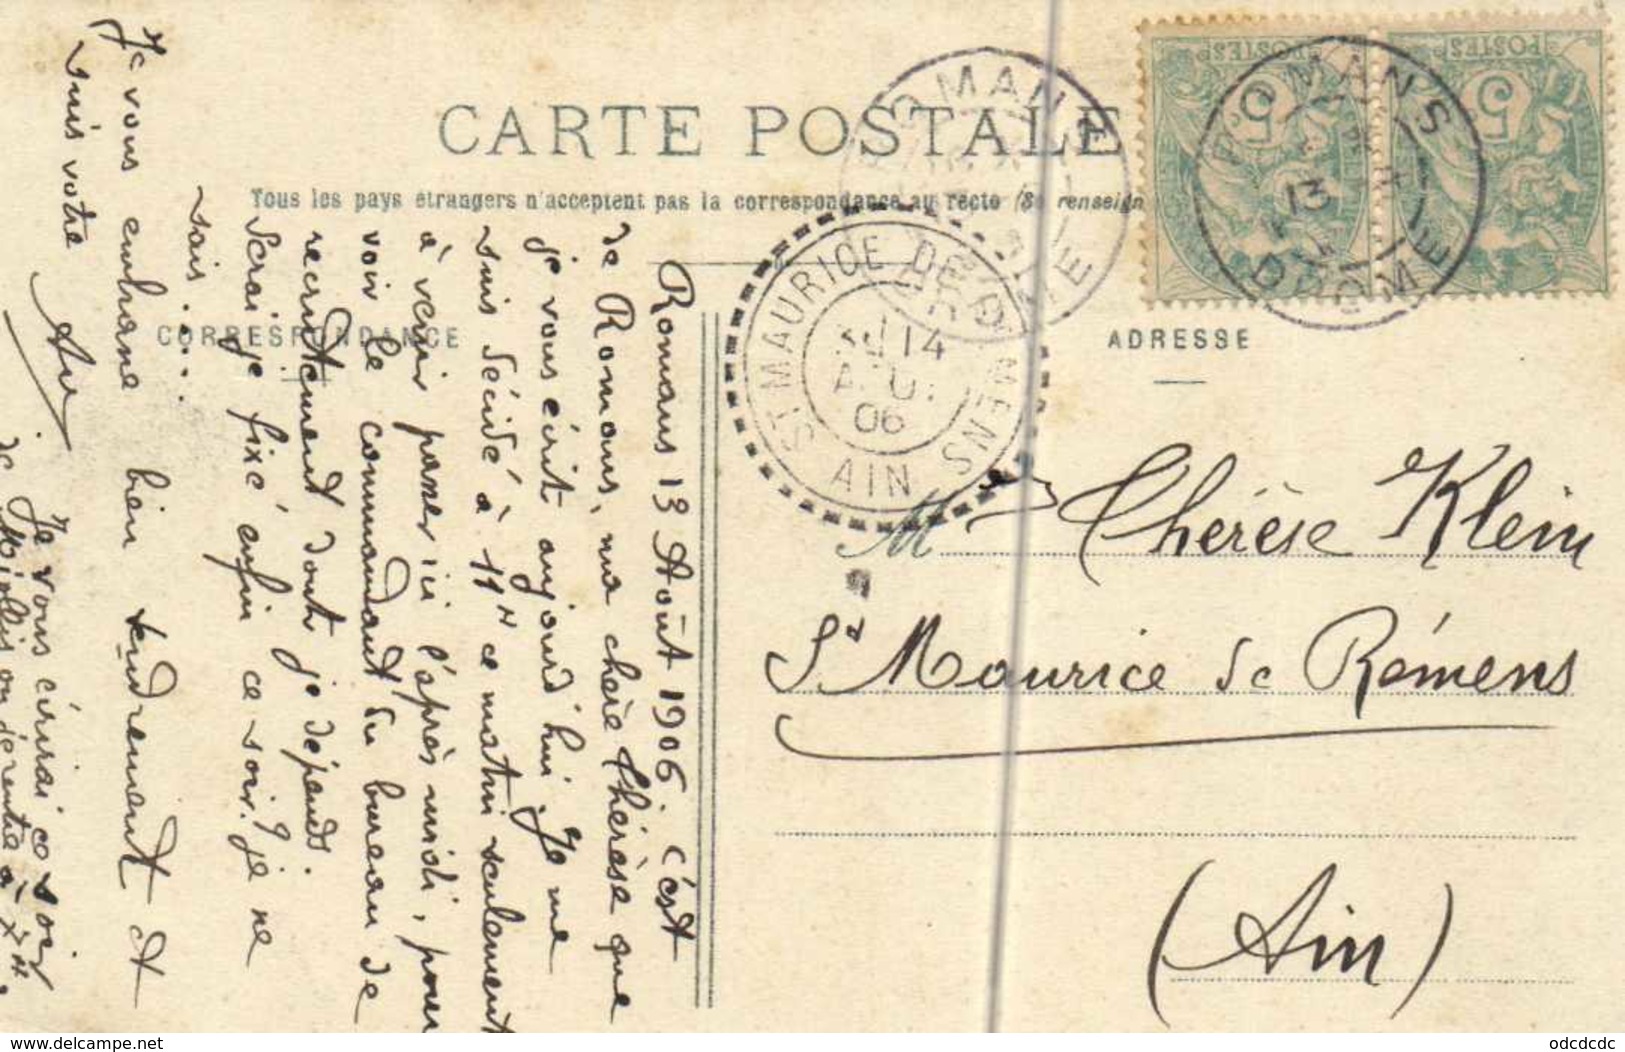 CARTE POSTALE
Tous les pays étrangers n'acceptent pas la correspondance au recto (Se renseign
CORRESPONDANCE
ADRESSE
POSTES
5
POSTES
5
ROMANS
13
DROME
ROMANS
DROME
ST MAURICE DE REMENS
14
AOUT
06
AIN
M Thérèse Klein
St Maurice de Rémens
(Ain)
Romans 13 Août 1906. C'est
de Romans, ma chère Thérèse que
je vous écrit aujourd'hui. Je me
suis décidé à 11H ce matin seulement
à venir passer ici l'après midi, pour
voir le commandant du bureau de
recrutement dont je dépends.
Serai je fixé enfin ce soir? je ne
sais ....
Je vous embrasse bien tendrement et
suis votre
Je vous écrirai ce soir
de Miollis ou je rentre à 7H.